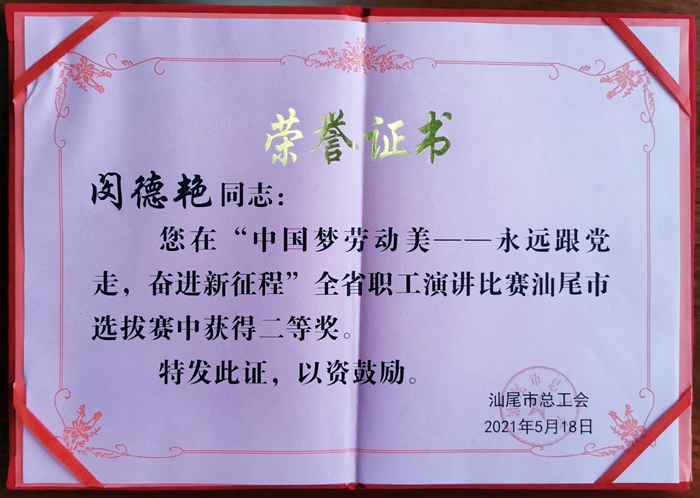 荣誉证书
闵德艳同志：
您在“中国梦劳动美——永远跟党
走，奋进新征程”全省职工演讲比赛汕尾市
选拔赛中获得二等奖。
特发此证，以资鼓励。
汕尾市总工会
2021年5月18日
汕尾市总工会